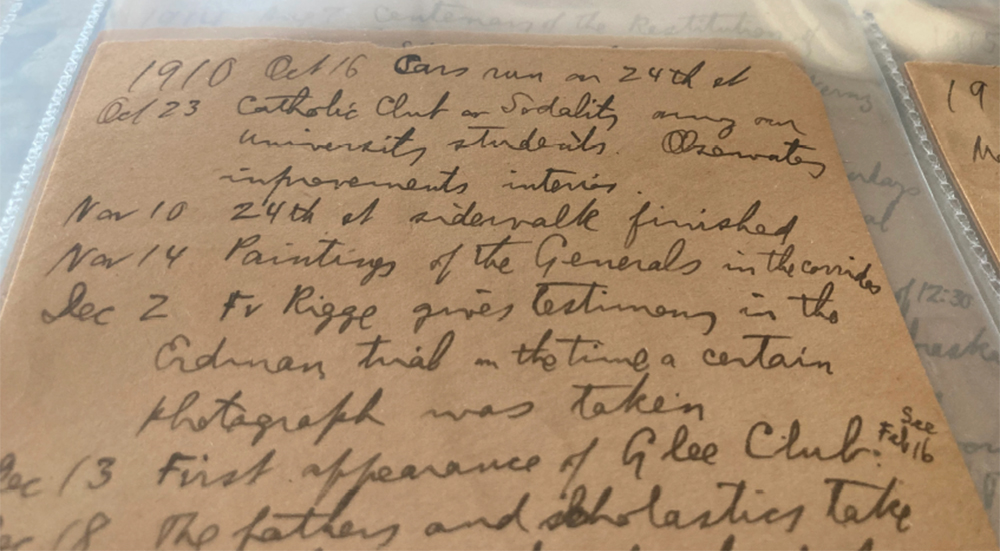 1910 Oct 16 Cars run on 24th st
Oct 23 Catholic Club or Sodality among our
University students. Observatory
improvements interior.
Nov 10 24th st sidewalk finished
Nov 14 Paintings of the Generals in the corridor
Dec 2 Fr Rigge gives testimony in the
Erdman trial on the time a certain
photograph was taken
Dec 13 First appearance of Glee Club. See
Feb 16
18 The fathers and scholastics take
19
of 12:30